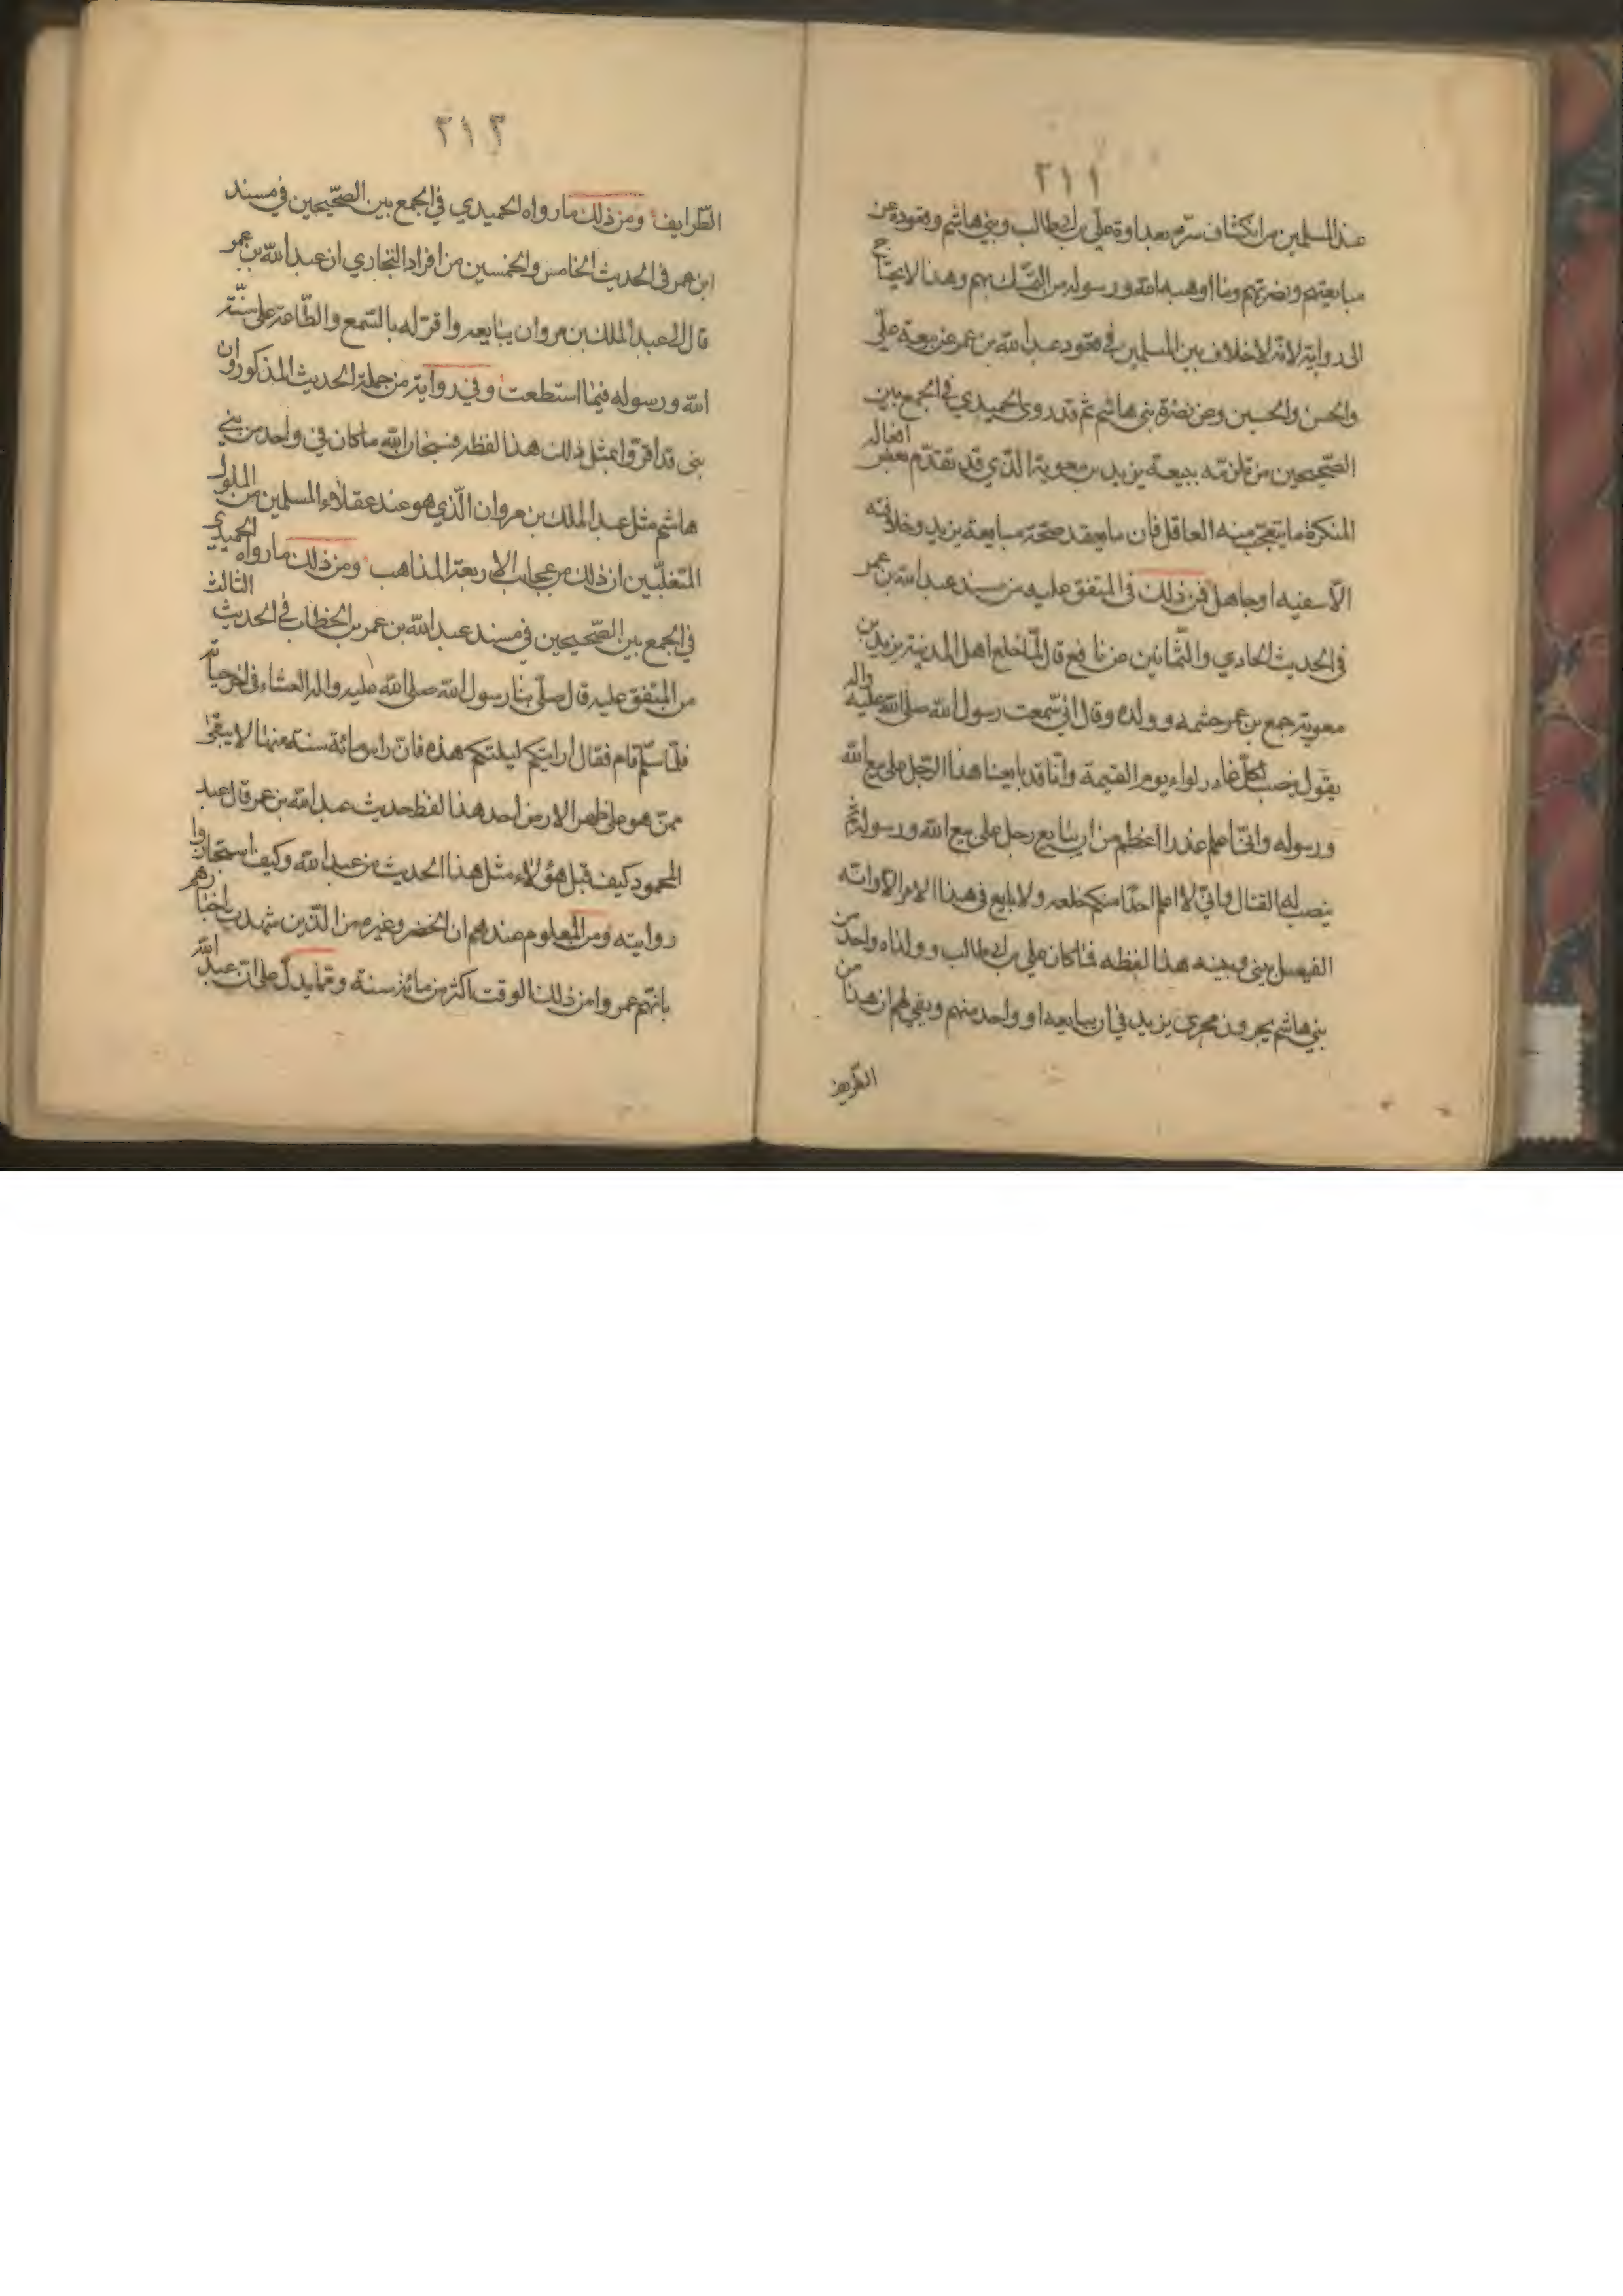 ٢١١
عند المسلمين من انكشاف سرّه بعداوة علي بن ابيطالب وبني هاشم وقعوده عن
مبايعتهم ونصرتهم وما اوهبه الله ورسوله من التمسّك بهم وهذا لا يحتاج
الى رواية لانّه لا خلاف بين المسلمين في قعود عبد الله بن عمر عن بيعة علي
والحسن والحسين وعن نصرة بني هاشم ثم قد روى الحميدي في الجمع بين
الصّحيحين من تلزمّه ببيعة يزيد بن معوية الّذي قد تقدّم بعض افعاله
المنكرة ما يتعجّب منه العاقل فان ما يعقد صحّة مبايعة يزيد وخلافته
الّا سفيه او جاهل فمن ذلك في المتفق عليه من مسند عبد الله بن عمر
في الحديث الحادي والثّمانين عن نافع قال لمّا خلع اهل المدينة يزيد بن
معوية جمع بن عمر حشمه وولده وقال انّي سمعت رسول الله صلى الله عليه واله
يقول ينصب لكلّ غادر لواء يوم القيمة وانّا قد بايعنا هذا الرّجل على بيع الله
ورسوله وانّي لا اعلم عذرا اعظم من ان يبايع رجل على بيع الله ورسوله ثم
ينصب له القتال وانّي لا اعلم احدًا منكم خلعه ولا بايع في هذا الامر الا كانت
الفيصل بيني وبينه هذا لفظه فما كان علي بن ابيطالب وولداه واحد من
بني هاشم يجرون مجرى يزيد في ان يبايعه او واحد منهم ويفي لهم ان هذا من
الطّريف
٢١٢
الطّرايف ومن ذلك ما رواه الحميدي في الجمع بين الصّحيحين في مسند
ابن عمر في الحديث الخامس والخمسين من افراد البخاري ان عبد الله بن عمر
قال لعبد الملك بن مروان يبايعه واقرّ له بالسّمع والطّاعة على سنّة
الله ورسوله فيما استطعت وفي رواية من جملة الحديث المذكور وان
بنى قد اقرّوا بمثل ذلك هذا لفظه فسبحان الله ما كان في واحد من بني
هاشم مثل عبد الملك بن مروان الّذي هو عند عقلاء المسلمين من الملوك
المتغلّبين ان ذلك من عجايب الاربعة المذاهب ومن ذلك ما رواه الحميدي
في الجمع بين الصّحيحين في مسند عبد الله بن عمر بن الخطاب في الحديث الثالث
من المتفق عليه قال صلّى بنا رسول الله صلى الله عليه واله العشاء في اخر حياته
فلمّا سلّم قام فقال ارايتكم ليلتكم هذه فانّ راس مائة سنة منها لا يبقى
ممّن هو على ظهر الارض احد هذا لفظ حديث عبد الله بن عمر قال عبد
المحمود كيف قبل هؤلاء مثل هذا الحديث من عبد الله وكيف استجازوا
روايته ومن المعلوم عندهم ان الخضر وغيره من الّذين شهدت اخبارهم
بانّهم عمروا من ذلك الوقت اكثر من مائة سنة وممّا يدلّ على انّ عبد الله